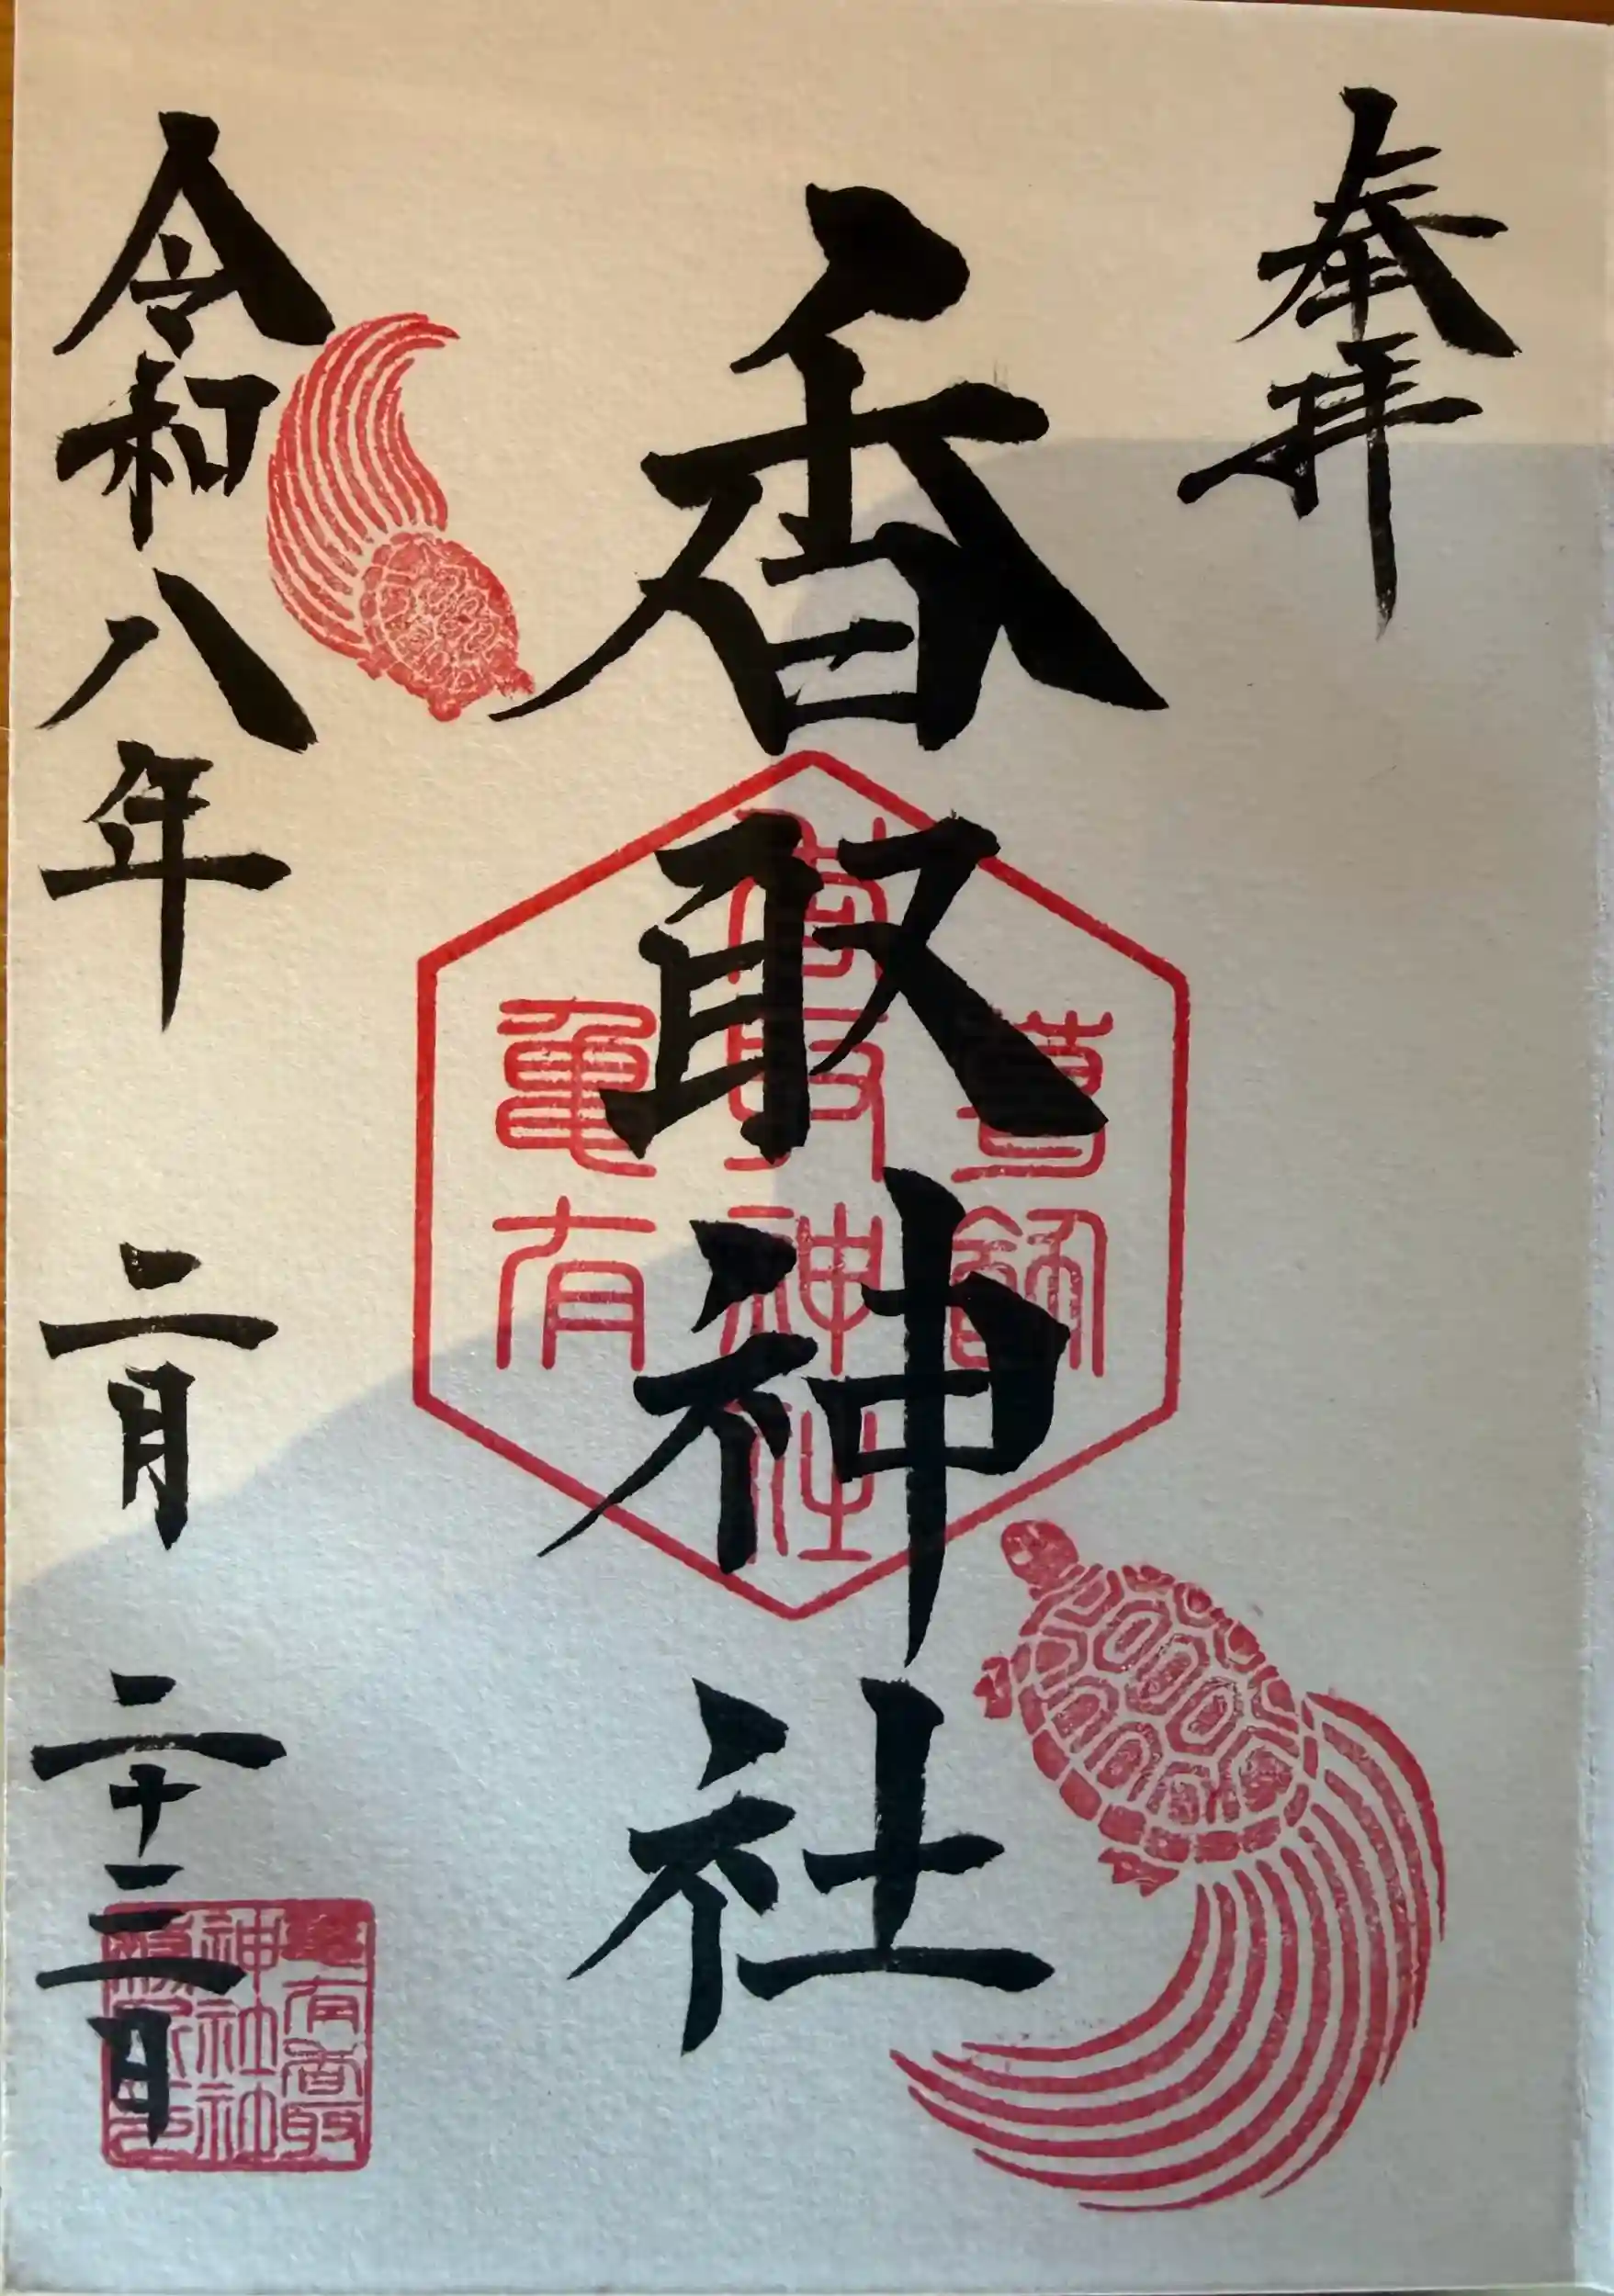 奉拝
香取神社
令和八年 二月 二十三日
葛飾
香取神社
龜有
龜有香取
神社社